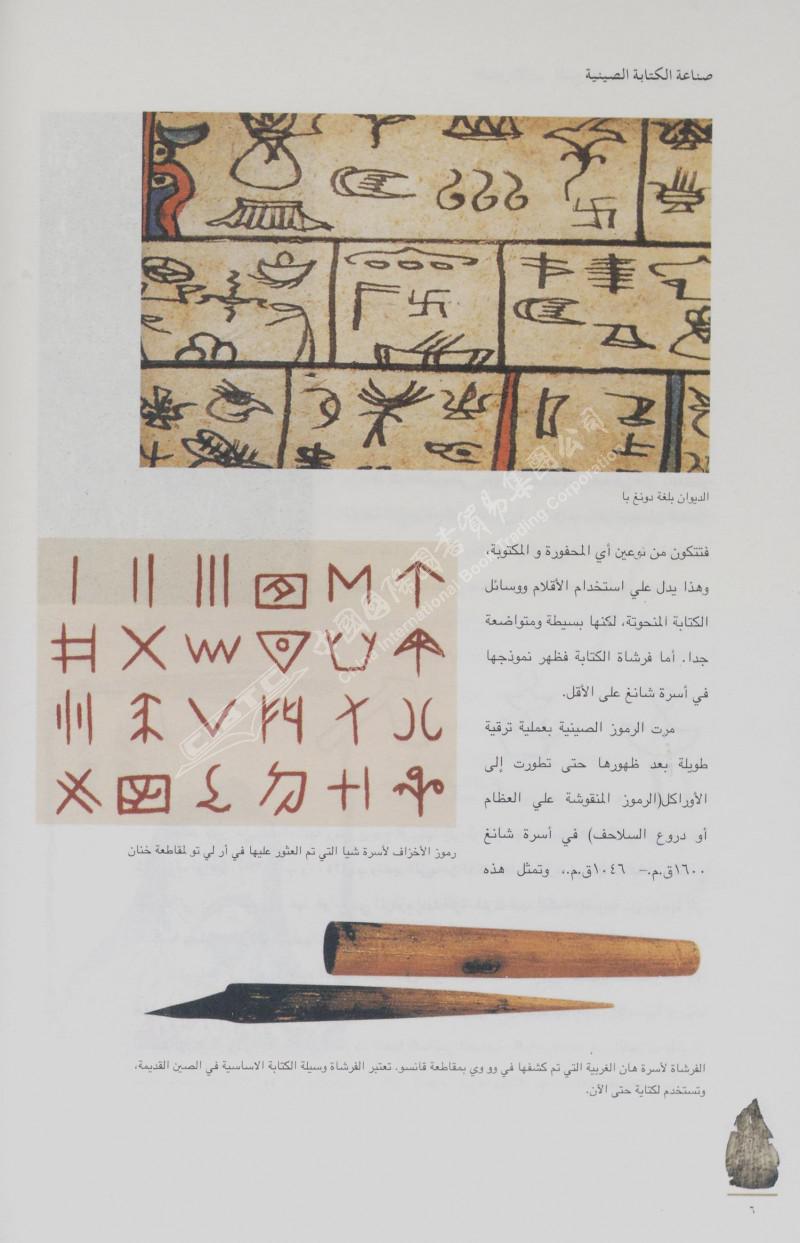 صناعة الكتابة الصينية
الديوان بلغة دونغ با
فتتكون من نوعين أي المحفورة و المكتوبة،
وهذا يدل علي استخدام الأقلام ووسائل
الكتابة المنحوتة، لكنها بسيطة ومتواضعة
جدا. أما فرشاة الكتابة فظهر نموذجها
في أسرة شانغ على الأقل.
مرت الرموز الصينية بعملية ترقية
طويلة بعد ظهورها حتى تطورت إلى
الأوراكل(الرموز المنقوشة علي العظام
أو دروع السلاحف) في أسرة شانغ
١٦٠٠ق.م.– ١٠٤٦ق.م.، وتمثل هذه
رموز الأخزاف لأسرة شيا التي تم العثور عليها في أر لي تو لمقاطعة خنان
الفرشاة لأسرة هان الغربية التي تم كشفها في وو وي بمقاطعة قانسو. تعتبر الفرشاة وسيلة الكتابة الاساسية في الصين القديمة،
وتستخدم لكتابة حتى الآن.
٦
中國國際圖書貿易集團公司
China International Book Trading Corporation
CIBTC